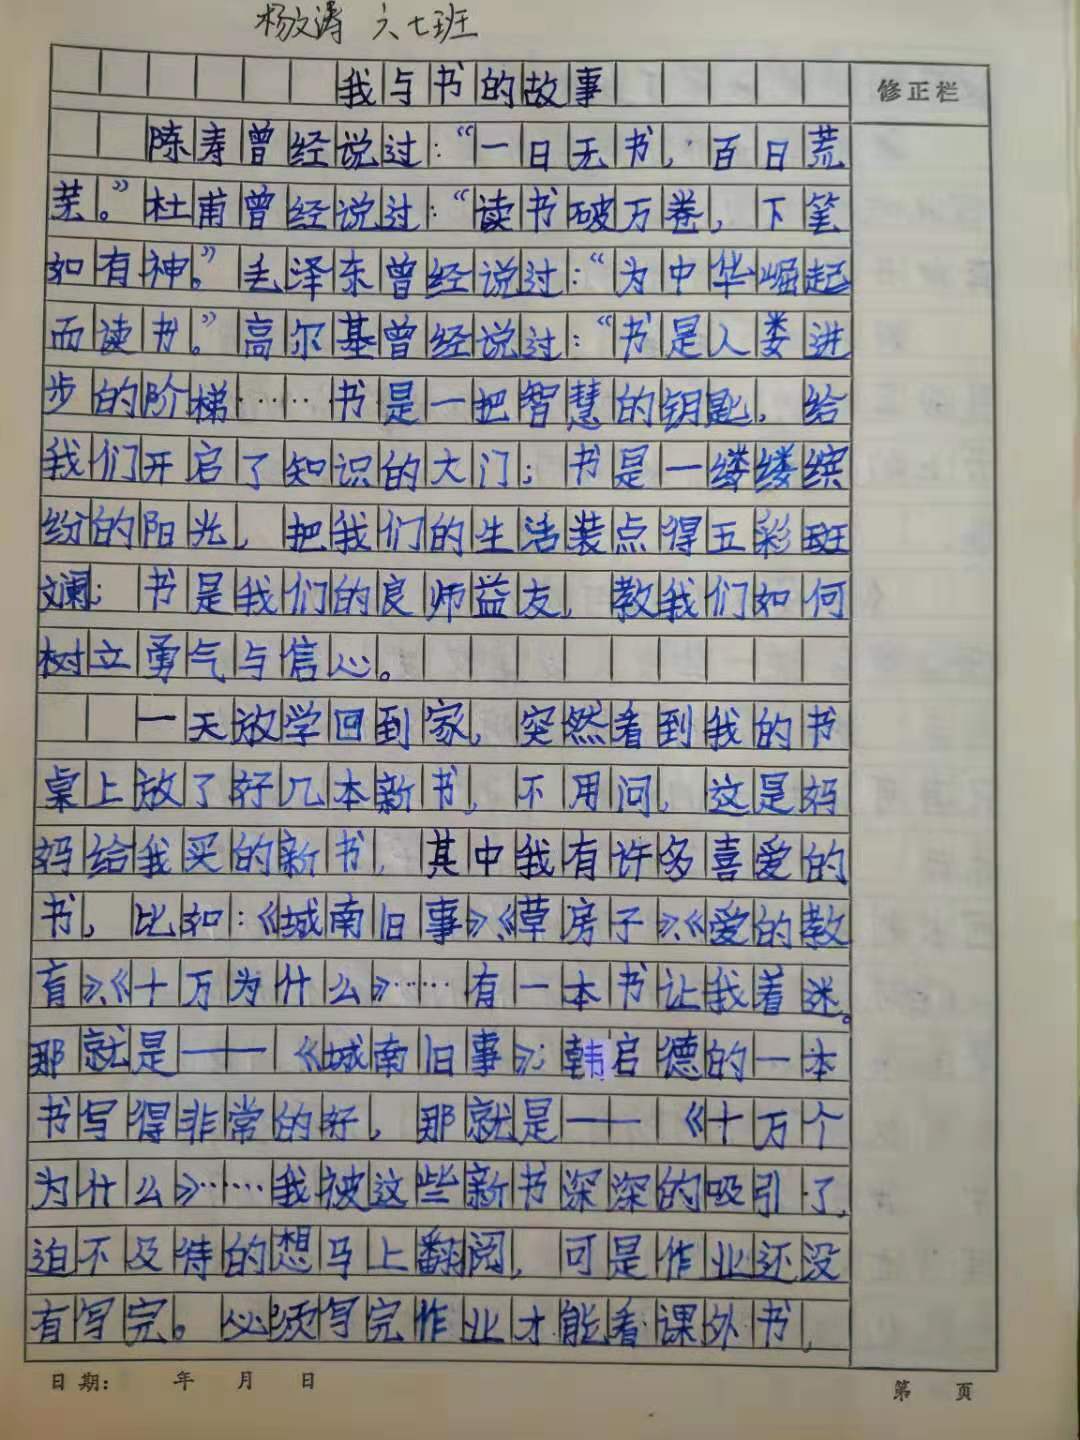 杨文涛 六七班
我与书的故事
修正栏
陈寿曾经说过：“一日无书，百日荒
芜。”杜甫曾经说过：“读书破万卷，下笔
如有神。”毛泽东曾经说过：“为中华崛起
而读书。”高尔基曾经说过：“书是人娄进
步的阶梯……书是一把智慧的钥匙，给
我们开启了知识的大门；书是一缕缕缤
纷的阳光，把我们的生活装点得五彩班
斓；书是我们的良师益友，教我们如何
树立勇气与信心。
一天放学回到家，突然看到我的书
桌上放了好几本新书，不用问，这是妈
妈给我买的新书，其中我有许多喜爱的
书，比如：《城南旧事》、《草房子》、《爱的教
育》、《十万为什么》……有一本书让我着迷。
那就是——《城南旧事》；韩启德的一本
书写得非常的好，那就是——《十万个
为什么》……我被这些新书深深的吸引了，
迫不及待的想马上翻阅，可是作业还没
有写完。必须写完作业才能看课外书，
日期： 年 月 日
第 页